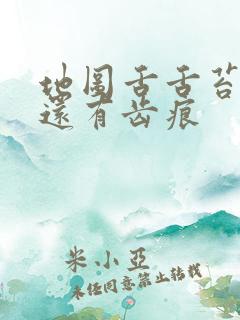 地图舌舌苔
還有齿痕
米小亞
未任同意禁止转载